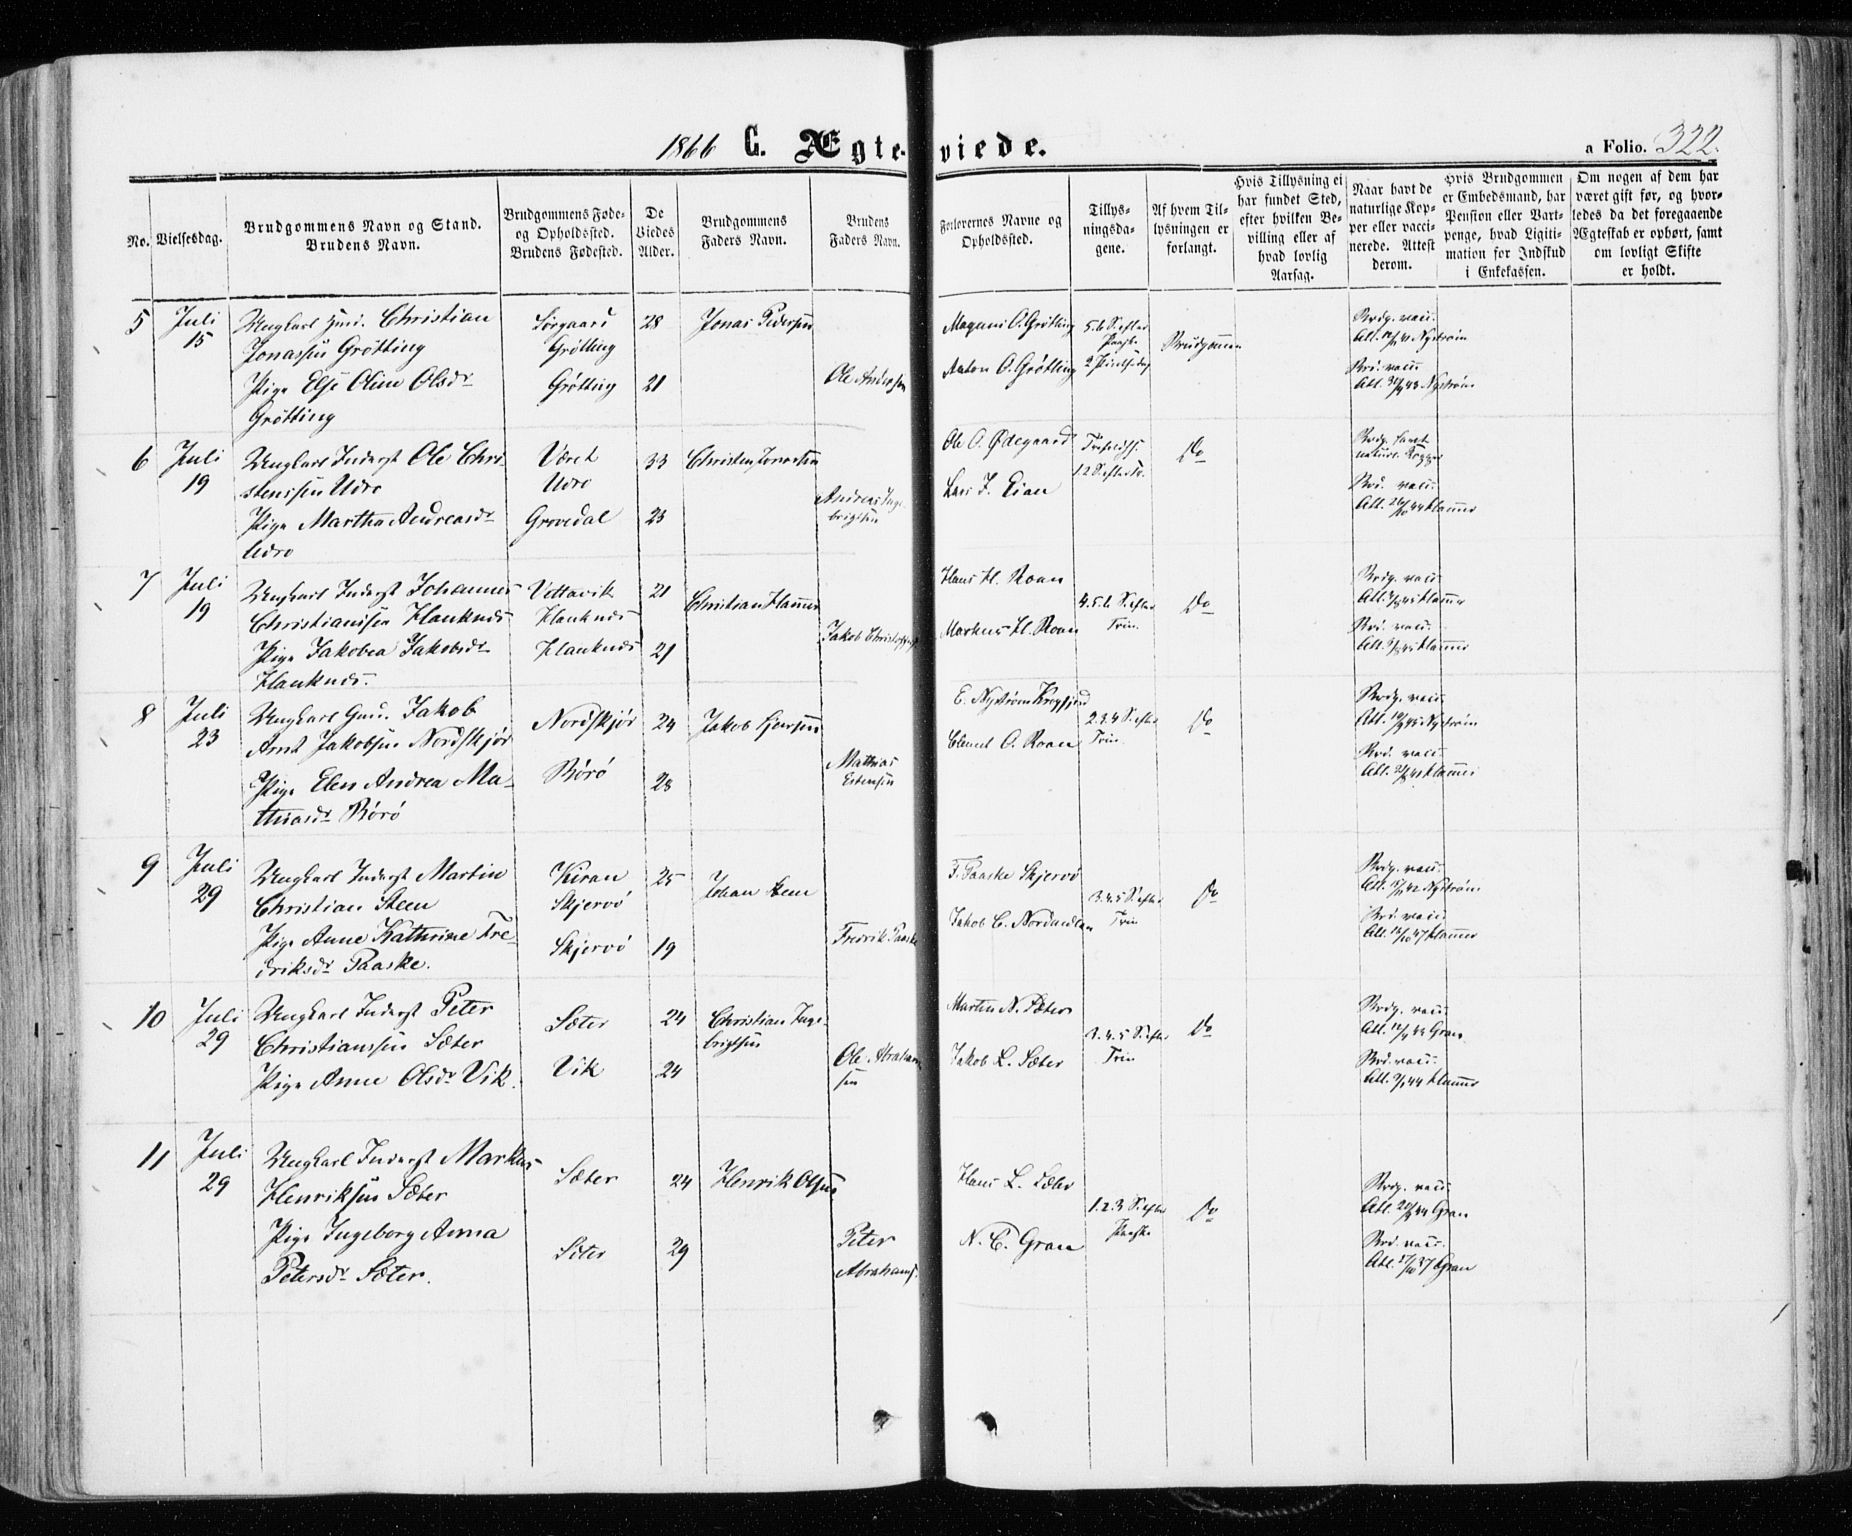 1866 C. Ægteviede. a Folio. 322.
No.
Vielsesdag.
Brudgommens Navn og Stand.
Brudens Navn.
Brudgommens Føde-
og Opholdssted.
Brudens Fødested.
De
Viedes
Alder.
Brudgommens
Faders Navn.
Brudens
Faders Navn.
Forlovernes Navne og
Opholdssted.
Tillys-
ningsda-
gene.
Af hvem Til-
lysningen er
forlangt.
Hvis Tillysning ei
har fundet Sted,
efter hvilken Be-
villing eller af
hvad lovlig
Aarsag.
Naar havt de
naturlige Kop-
per eller vacci-
nerede. Attest
derom.
Hvis Brudgommen
er Embedsmand, har
Pension eller Vart-
penge, hvad Ligiti-
mation for Indskud
i Enkekassen.
Om nogen af dem har
været gift før, og hvor-
ledes da det foregaaende
Ægteskab er ophørt, samt
om lovligt Skifte
er holdt.
5 Juli 15
Ungkarl Christian
Jonassen Grøtting
Pige Else Oline Olsdr
Grøtting
Sørgaard
Grøtting
Grøtting
28
21
Jonas Pedersen
Ole Andersen
Magnus O. Grøtting
Anton O. Grøtting
5.6 S. efter
Paaske
2 Pindsedag
Brudgommen
Brdg. vacc.
Att. Nystrøm
Brd. vacc.
Att. Nystrøm
6 Juli 19
Ungkarl Inderst Ole Chri-
stensen Udro
Pige Martha Andreasdr
Udro
Været
Udro
Grovedal
33
23
Christen Jonassen
Andreas Inge-
brigtsen
Ole O. Ødegaard
Lars J. Eian
1.2 S. efter Tr.
Do
Brdg. havt
naturl. Kopper
Brd. vacc.
Att. Klamer
7 Juli 19
Ungkarl Inderst Johannes
Christiansen Hanknes
Pige Jakobea Jakobsdr
Hanknes.
Vettavik
Hanknes
Hanknes
21
21
Christian Hamer
Jakob
Hans H. Roan
Markus H. Roan
4.5.6 S. efter
Trin.
Do
Brdg. vacc.
Att. Klamer
Brd. vacc.
Att. Klamer
8 Juli 23
Ungkarl Jakob
Arnt Jakobsen Nordskjør
Pige Elen Andrea Ma-
thiasdr Børø
Nordskjør
Børø
24
28
Jakob
Mathias
Estensen
E. Nystrøm
Clemet O. Roan
2.3.4 S. efter
Trin.
Do
Brdg. vacc.
Att. Nystrøm
Brd. vacc.
Att. Klamer
9 Juli 29
Ungkarl Inderst Martin
Christian Steen
Pige Anne Kathrine Fre-
driksdr Paaske.
Kiran
Skjervø
Skjervø
25
19
Johan Steen
Fredrik Paaske
F. Paaske Skjervø
Jakob C. Nordandlan
3.4.5 S. efter
Trin
Do
Brdg. vacc.
Att. Nystrøm
Brd. vacc.
Att. Klamer
10 Juli 29
Ungkarl Inderst Peter
Christianssen Sæter
Pige Anne Olsdr Vik.
Sæter
Vik
24
24
Christian Inge-
brigtsen
Ole Abraham-
sen
Martin N. Sæter
Jakob L. Sæter
3.4.5 S. efter
Trin
Do
Brdg. vacc.
Att. Gran
Brd. vacc.
Att. Klamer
11 Juli 29
Ungkarl Inderst Markus
Henriksen Sæter
Pige Ingeborg Anna
Petersdr Sæter.
Sæter
Sæter
24
29
Henrik Olsen
Peter
Abrahams.
Hans L. Sæter
N. C. Gran
1.2.3 S. efter
Paaske
Do
Brdg. vacc.
Att. Gran
Brd. vacc.
Att. Gran